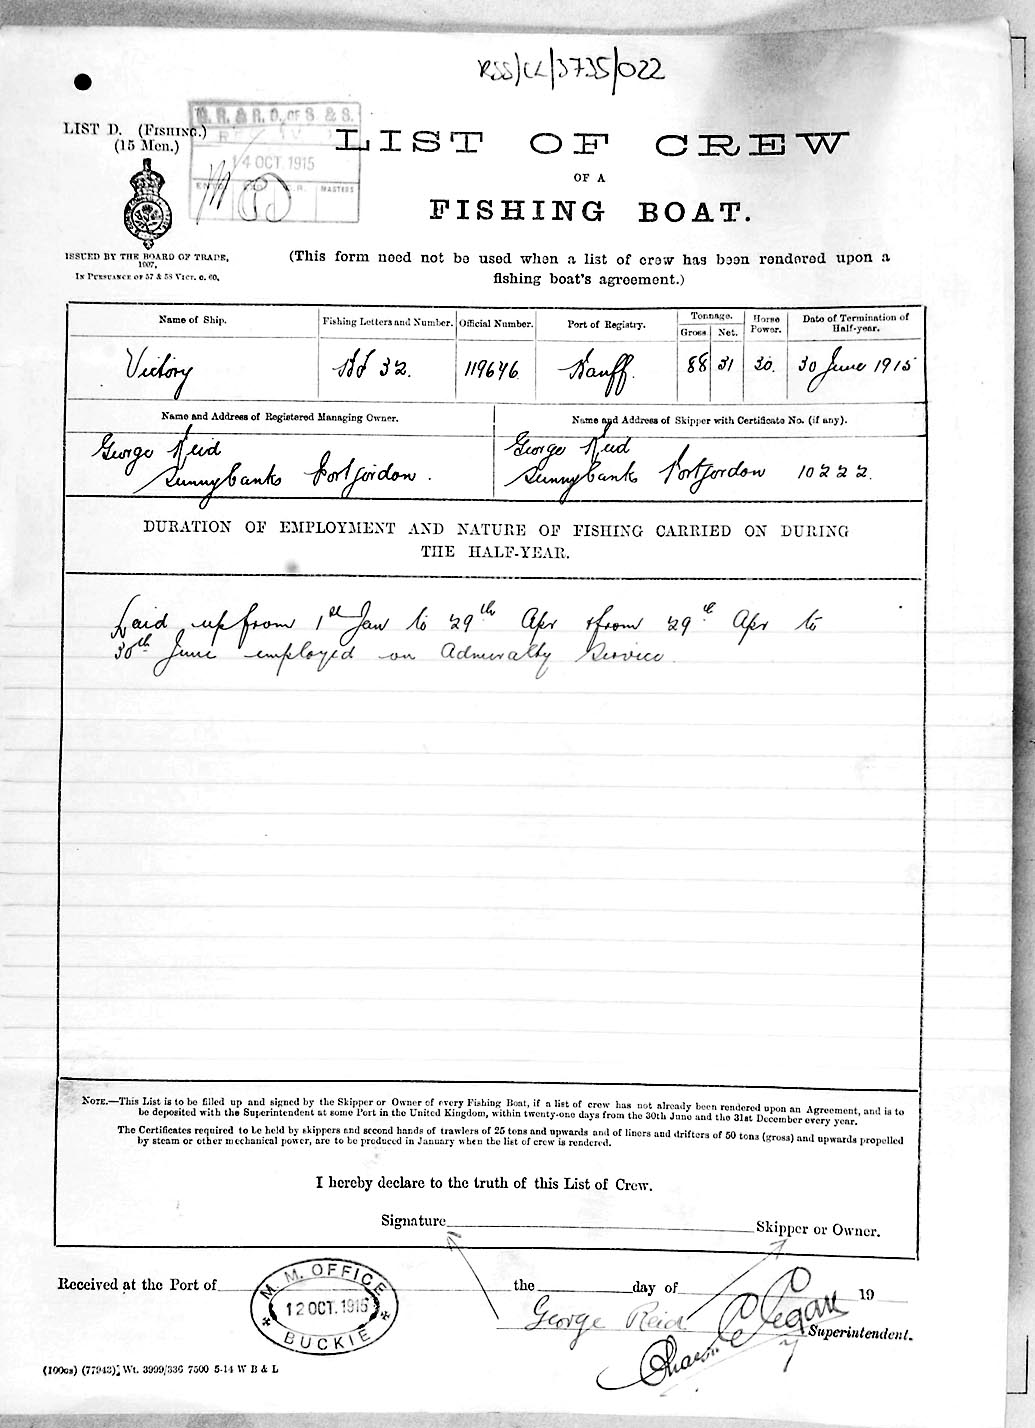 RSS/CL/3735/022
LIST D. (FISHING.)
(15 Men.)
G. R. & R. O. OF S. & S.
14 OCT 1915
MASTERS
LIST OF CREW
OF A
FISHING BOAT.
ISSUED BY THE BOARD OF TRADE,
1907,
IN PURSUANCE OF 57 & 58 VICT. c. 60.
(This form need not be used when a list of crew has been rendered upon a
fishing boat's agreement.)
Name of Ship. Fishing Letters and Number. Official Number. Port of Registry. Tonnage. Gross. Net. Horse Power. Date of Termination of Half-year.
Victory BF 32. 119646 Banff. 88 31 30. 30 June 1915
Name and Address of Registered Managing Owner. Name and Address of Skipper with Certificate No. (if any).
George Reid George Reid
Sunnybanks Portgordon. Sunnybanks Portgordon 10222.
DURATION OF EMPLOYMENT AND NATURE OF FISHING CARRIED ON DURING
THE HALF-YEAR.
Laid up from 1st Jan to 29th Apr & from 29th Apr to
30th June employed on Admiralty Service.
NOTE.—This List is to be filled up and signed by the Skipper or Owner of every Fishing Boat, if a list of crew has not already been rendered upon an Agreement, and is to
be deposited with the Superintendent at some Port in the United Kingdom, within twenty-one days from the 30th June and the 31st December every year.
The Certificates required to be held by skippers and second hands of trawlers of 25 tons and upwards and of liners and drifters of 50 tons (gross) and upwards propelled
by steam or other mechanical power, are to be produced in January when the list of crew is rendered.
I hereby declare to the truth of this List of Crew.
Signature Skipper or Owner.
Received at the Port of the day of 19
M. M. OFFICE
12 OCT. 1915
BUCKIE
George Reid
Superintendent.
(100cs) (77943). Wt. 3999/336 7500 5-14 W B & L